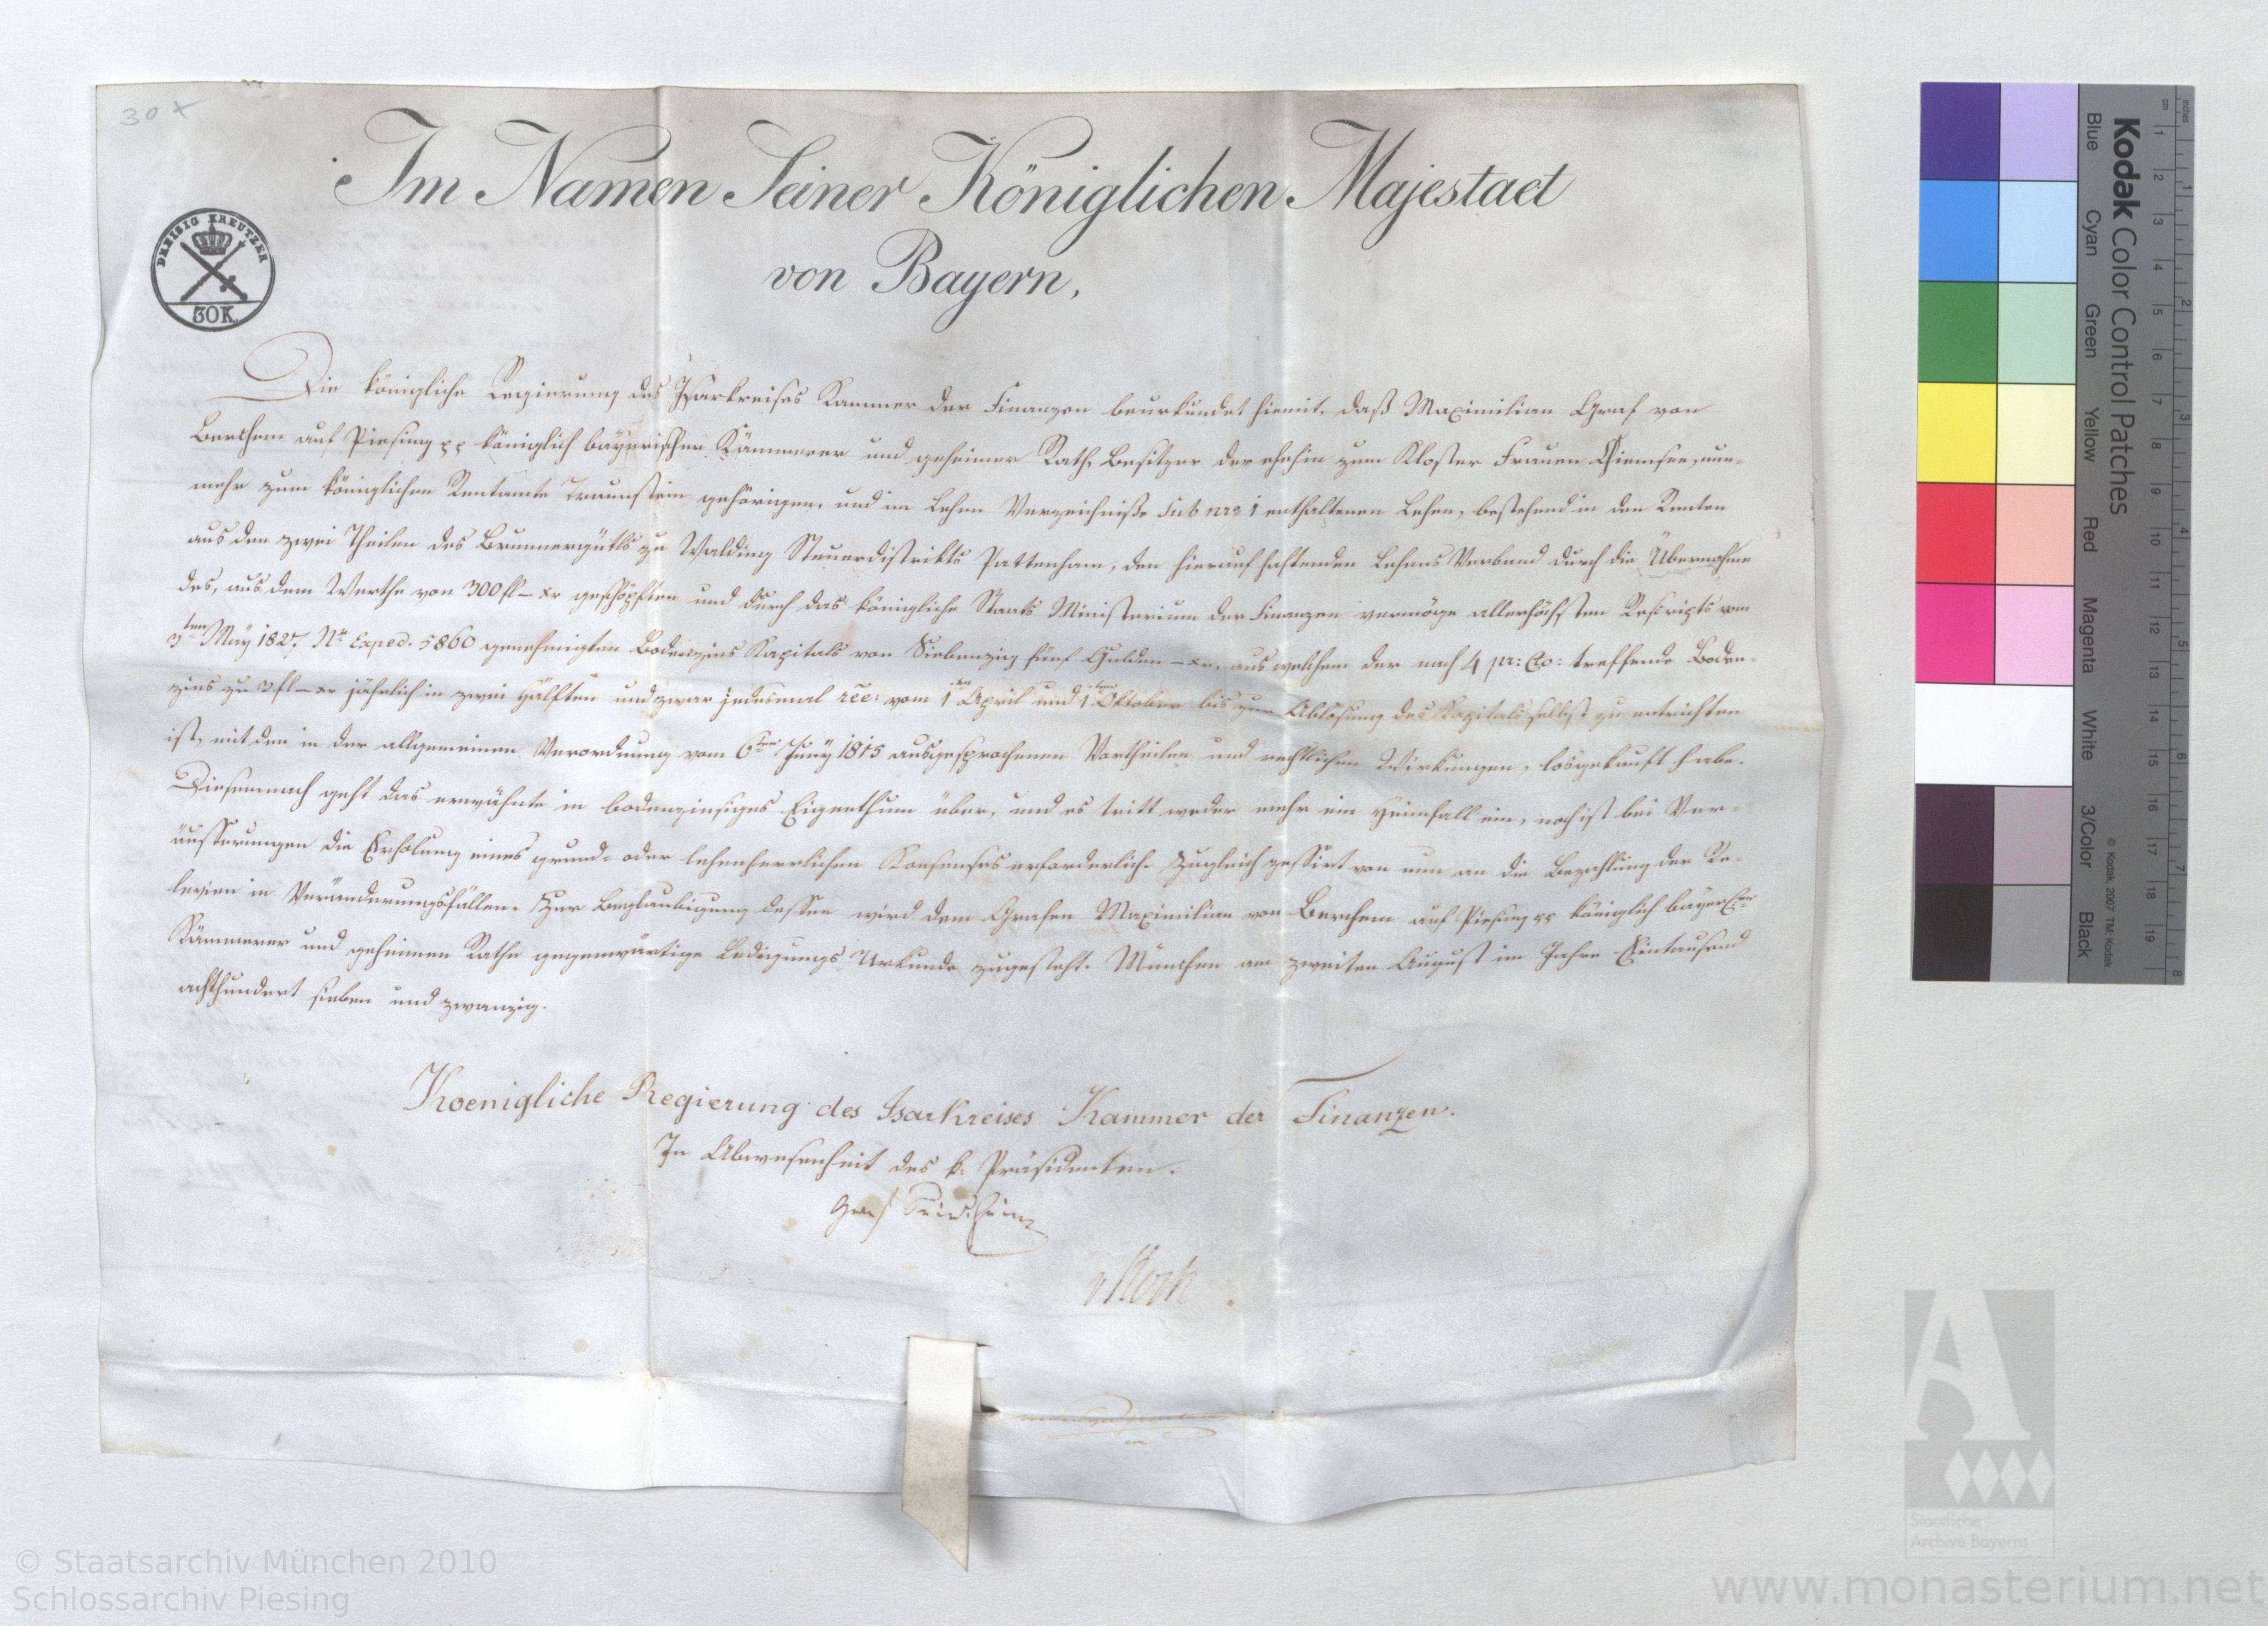 30 x
Im Namen Seiner Königlichen Majestaet
von Bayern,
DREISIG KREUTZER
30K
Die königliche Regierung des Isarkreises Kammer der Finanzen beurkundet hiemit, daß Maximilian Graf von
Berchem auf Piesing pp königlich bayerischer Kämmerer und geheimer Rath, Besitzer der ehehin zum Kloster Frauen Chiemsee, nun-
mehr zum königlichen Rentamte Traunstein gehörigen, und im Lehen Verzeichniße sub nro 1 enthaltenen Lehen, bestehend in den Renten
aus den zwei Theilen des Brunnergütls zu Walding Steuerdistrikts Pattenham, den hierauf haftenden Lehens Verband durch die Übernahme
des, aus dem Werthe von 300 fl – xr geschöpften und durch das königliche Staats Ministerium der Finanzen vermöge allerhöchsten Rescripts vom
3ten May 1827 No Exped. 5860 genehmigten Bodenzins Kapitals von Siebenzig fünf Gulden – xr, aus welchem der nach 4 pr: Cto: treffende Boden-
zins zu 3 fl – xr jährlich in zwei Hälften und zwar jedesmal vom 1ten April und 1ten Oktober bis zur Ablösung des Kapitals selbst zu entrichten
ist, mit den in der allgemeinen Verordnung vom 6ten Juny 1815 ausgesprochenen Vortheilen und rechtlichen Wirkungen, losgekauft habe.
Diesemnach geht das erwähnte in bodenzinsiges Eigenthum über, und es tritt weder mehr ein Heimfall ein, noch ist bei Ver-
äusserungen die Erholung eines grund- oder lehenherrlichen Konsenses erforderlich. Zugleich zessirt von nun an die Bezahlung der Re-
levien in Veränderungsfällen. Zur Beglaubigung dessen wird dem Grafen Maximilian von Berchem auf Piesing pp königlich bayer
Kämmerer und geheimen Rathe gegenwärtige Ledigungs Urkunde zugestellt. München am zweiten August im Jahre Eintausend
achthundert sieben und zwanzig.
Koenigliche Regierung des Isarkreises Kammer der Finanzen.
In Abwesenheit des k. Präsidenten.
Graf
Kodak Color Control Patches
Blue Cyan Green Yellow Red Magenta White 3/Color Black
© Kodak, 2007 TM: Kodak
inches 1 2 3 4 5 6 7 8
cm 1 2 3 4 5 6 7 8 9 10 11 12 13 14 15 16 17 18 19
Staatliche
Archive Bayerns
© Staatsarchiv München 2010
Schlossarchiv Piesing
www.monasterium.net